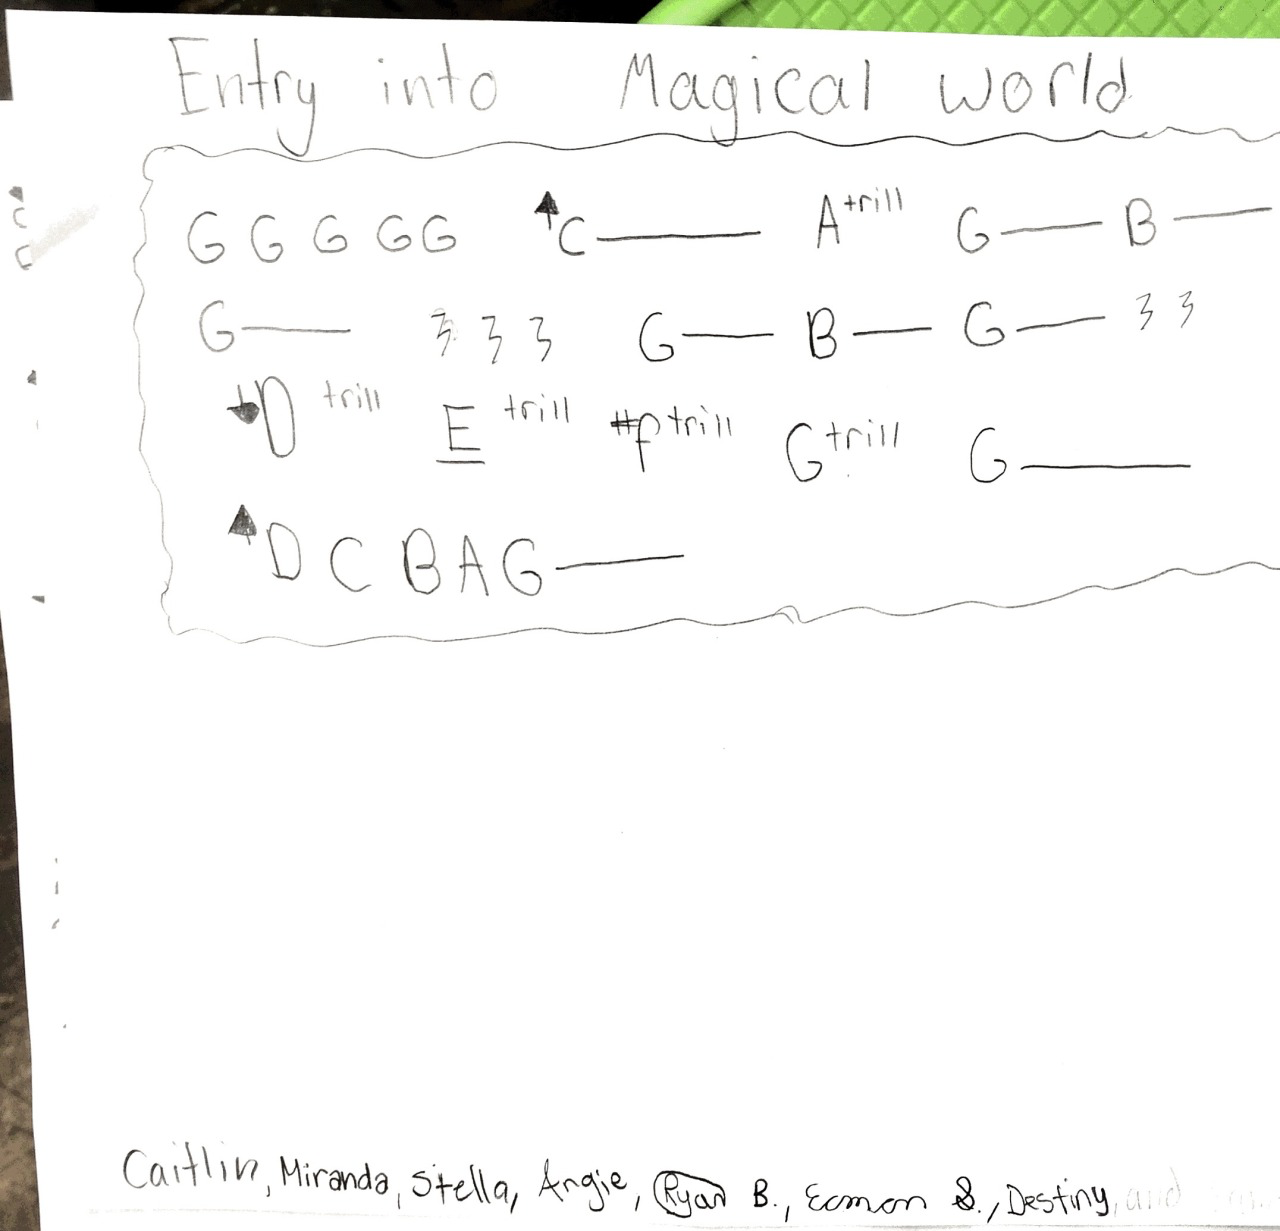 Entry into Magical world
G G G G G ↑C— A trill G— B—
G— 𝄽 𝄽 𝄽 G— B— G— 𝄽 𝄽
↓D trill E trill #f trill G trill G—
↑D C B A G—
Caitlin, Miranda, Stella, Angie, Ryan B., Destiny, and